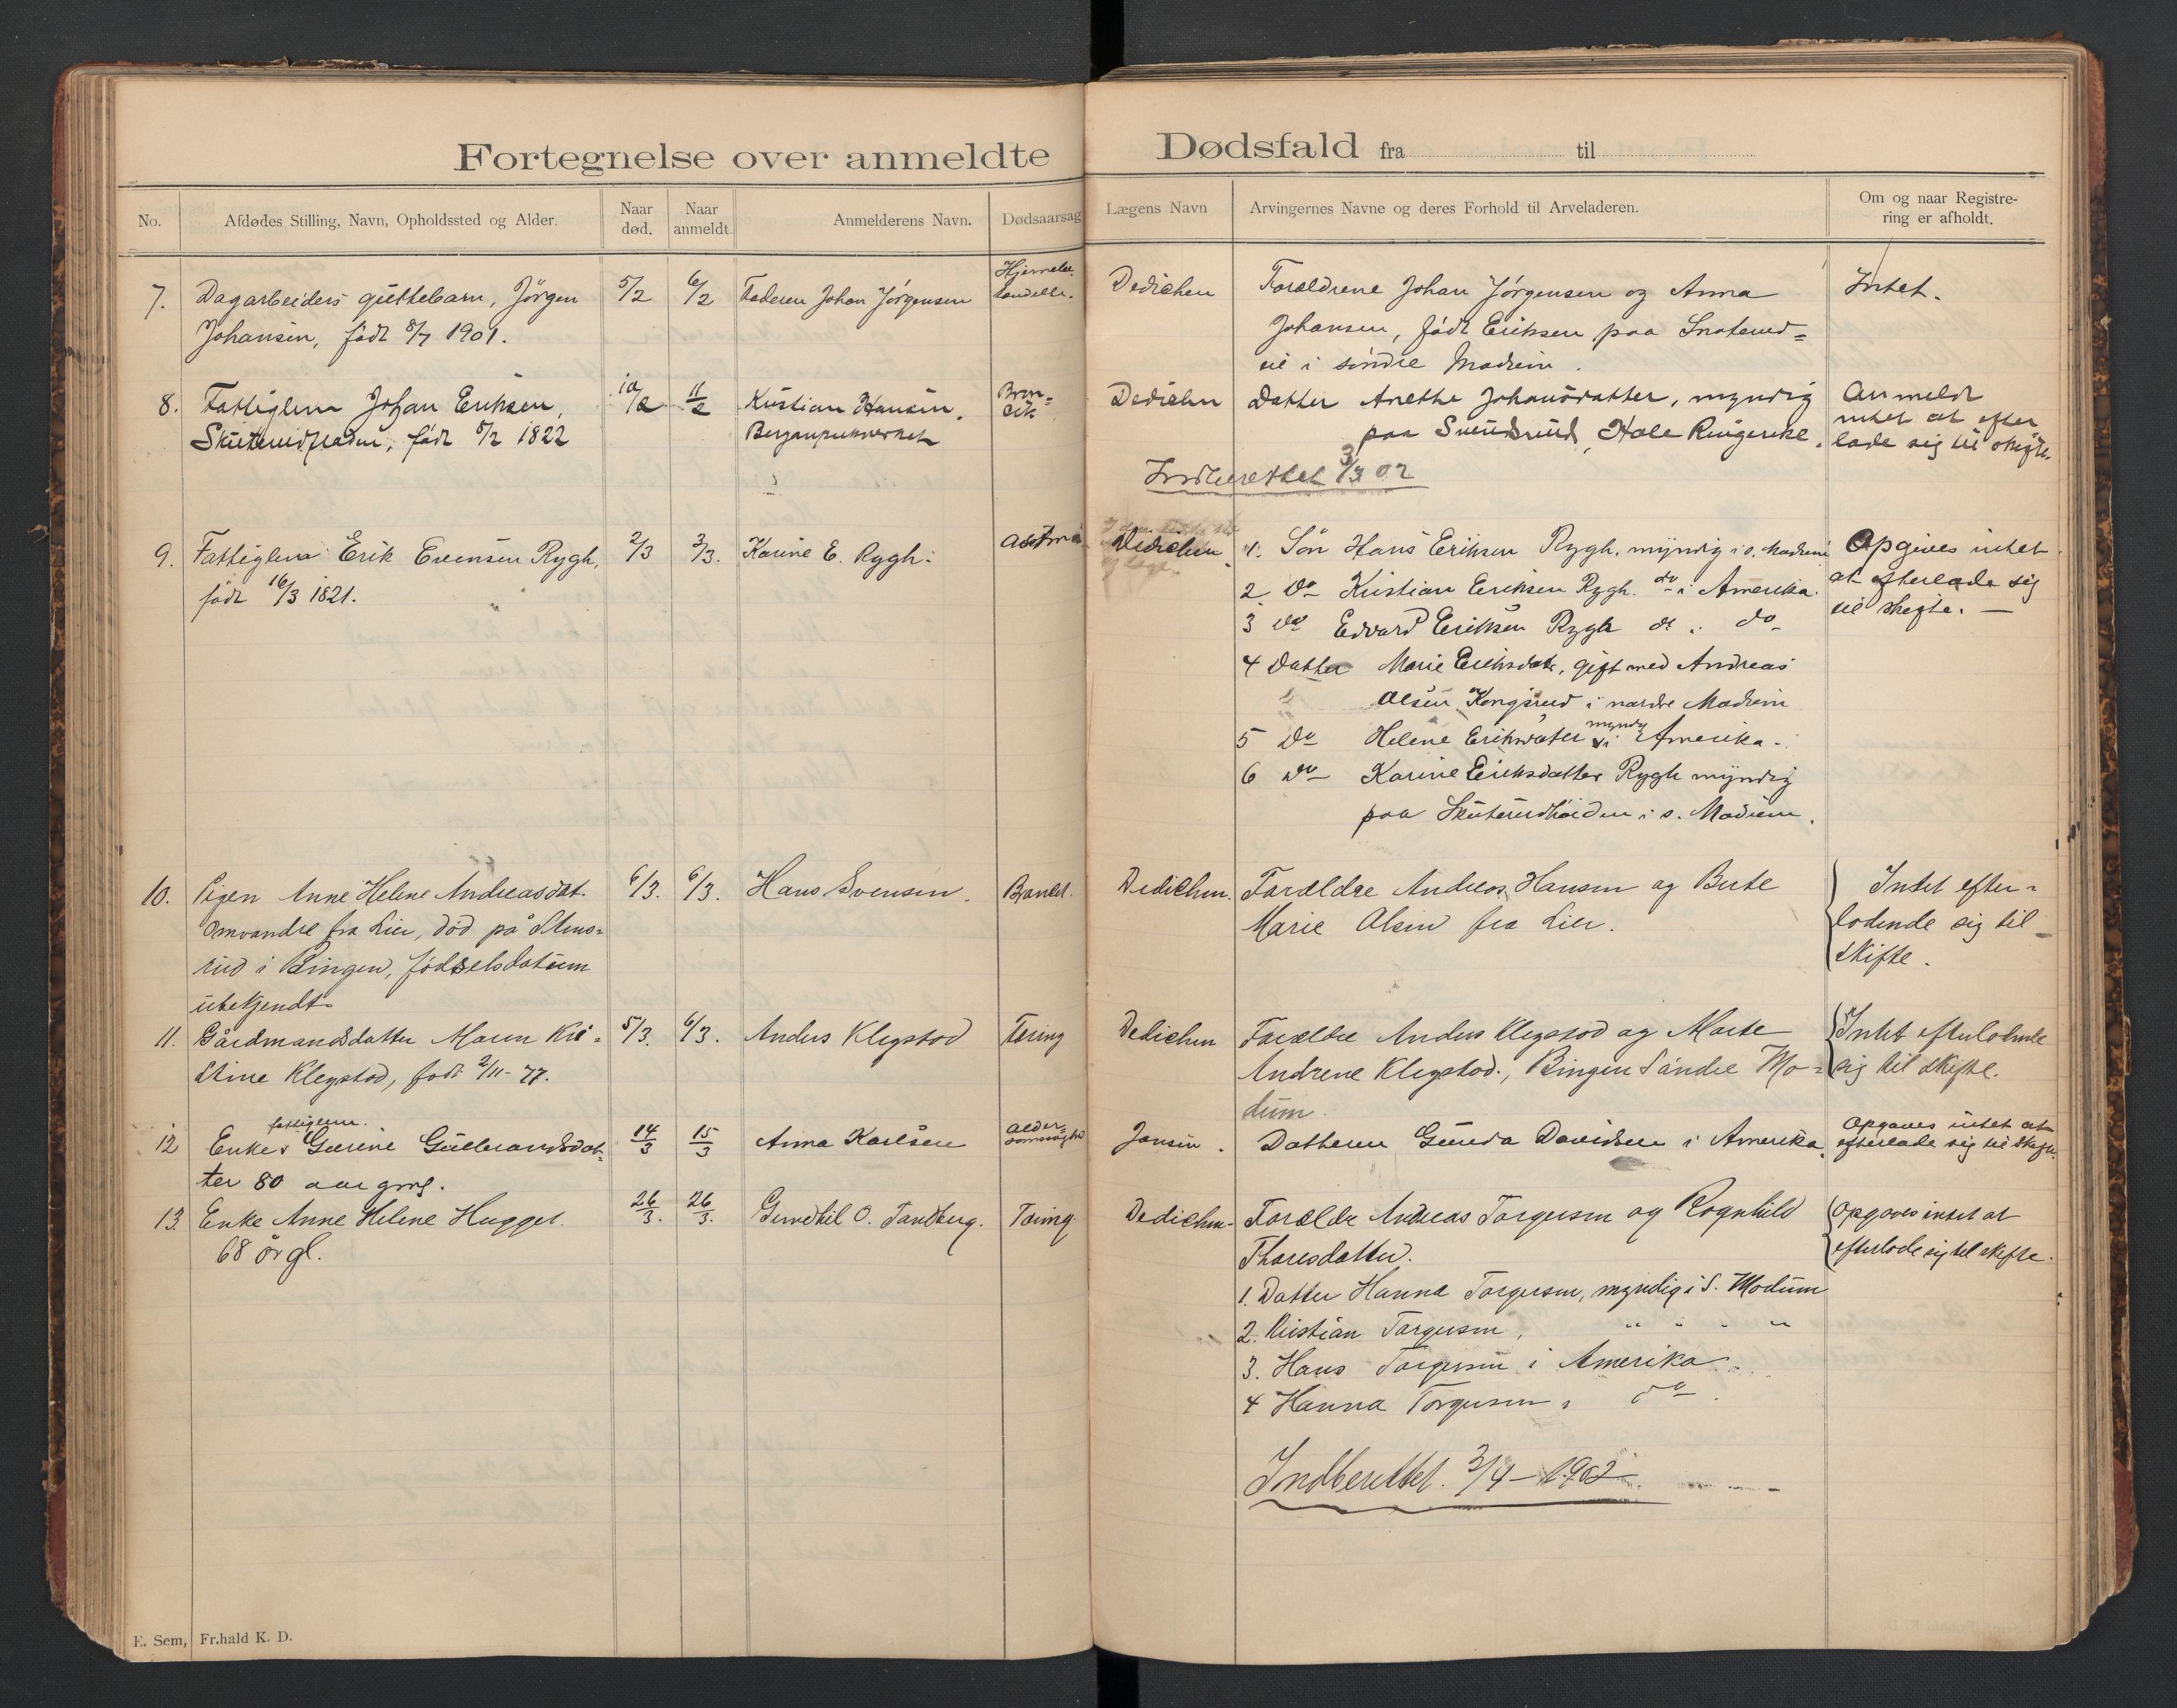 Fortegnelse over anmeldte Dødsfald fra til
No. Afdødes Stilling, Navn, Opholdssted og Alder. Naar død. Naar anmeldt. Anmelderens Navn. Dødsaarsag Lægens Navn Arvingernes Navne og deres Forhold til Arveladeren. Om og naar Registrering er afholdt.
7. Dagarbeiders guttebarn, Jörgen
Johansen, født 8/7 1901.
5/2 6/2 Faderen Johan Jörgensen
Dedichen
Forældrene Johan Jörgensen og Anna
Johansen, født Eriksen paa
i söndre Modum.
Intet.
8. Fattiglem Johan Eriksen,
født 5/2 1822
10/2 11/2 Kristian Hansen.
Dedichen
Datter Anethe Johansdatter, myndig
paa Svendsrud, Hole Ringerike.
Anmeldt
intet at efter
lade sig til skifte.
Indberettet 3/3 02
9. Fattiglem Erik Evensen Rygh,
født 16/3 1821.
2/3 3/3. Karine E. Rygh.
Astma
Dedichen.
1. Sön Hans Eriksen Rygh. myndig i s. Modum
2 do Kristian Eriksen Rygh. do i Amerika.
3 do Edvard Eriksen Rygh do i do
4 Datter Marie Eriksdatr, gift med Andreas
Olsen Kongsrud i nordre Modum
5 do Helene Eriksdatter myndg i Amerika.
6 do Karine Eriksdatter Rygh myndig
paa Skuterudhöiden i s. Modum.
Opgives intet
at efterlade sig
til skifte. —
10. Pigen Anne Helene Andreasdat.
Omvandre fra Lier, död på Stens=
rud i Bingen, fødselsdatum
ubekjendt
6/3. 6/3. Hans Svensen.
Dedichen.
Forældre Andreas Hansen og Berte
Marie Olsen fra Lier.
Intet efter=
ladende sig til
skifte.
11. Gårdmandsdatter Maren Kri=
stine Klegstad, født 2/11-77.
5/3. 6/3. Anders Klegstad
Tæring
Dedichen
Forældre Anders Klegstad og Marte
Andrene Klegstad., Bingen Söndre Mo=
dum
Intet efterladende
sig til skifte.
12 fattiglem.
Enke Gurine Gulbrandsdat=
ter 80 aar gml.
14/3 15/3 Anna Karlsen
Alder=
Jansen.
Datteren Gunda Davidsen i Amerika.
Opgaves intet at
efterlade sig til skifte.
13. Enke Anne Helene Hugget.
68 år gl.
26/3. 26/3. Gundhil O. Tandberg.
Tæring.
Dedichen
Forældre Andreas Torgersen og Ragnhild
Thoresdatter.
1. Datter Hanna Torgersen, myndig i S. Modum
2. Kristian Torgersen, " " " "
3. Hans Torgersen i Amerika.
4 Hanna Torgersen i do.
Opgaves intet at
efterlade sig til skifte.
Indberettet. 3/4 – 1902
E. Sem, Fr.hald K. D.